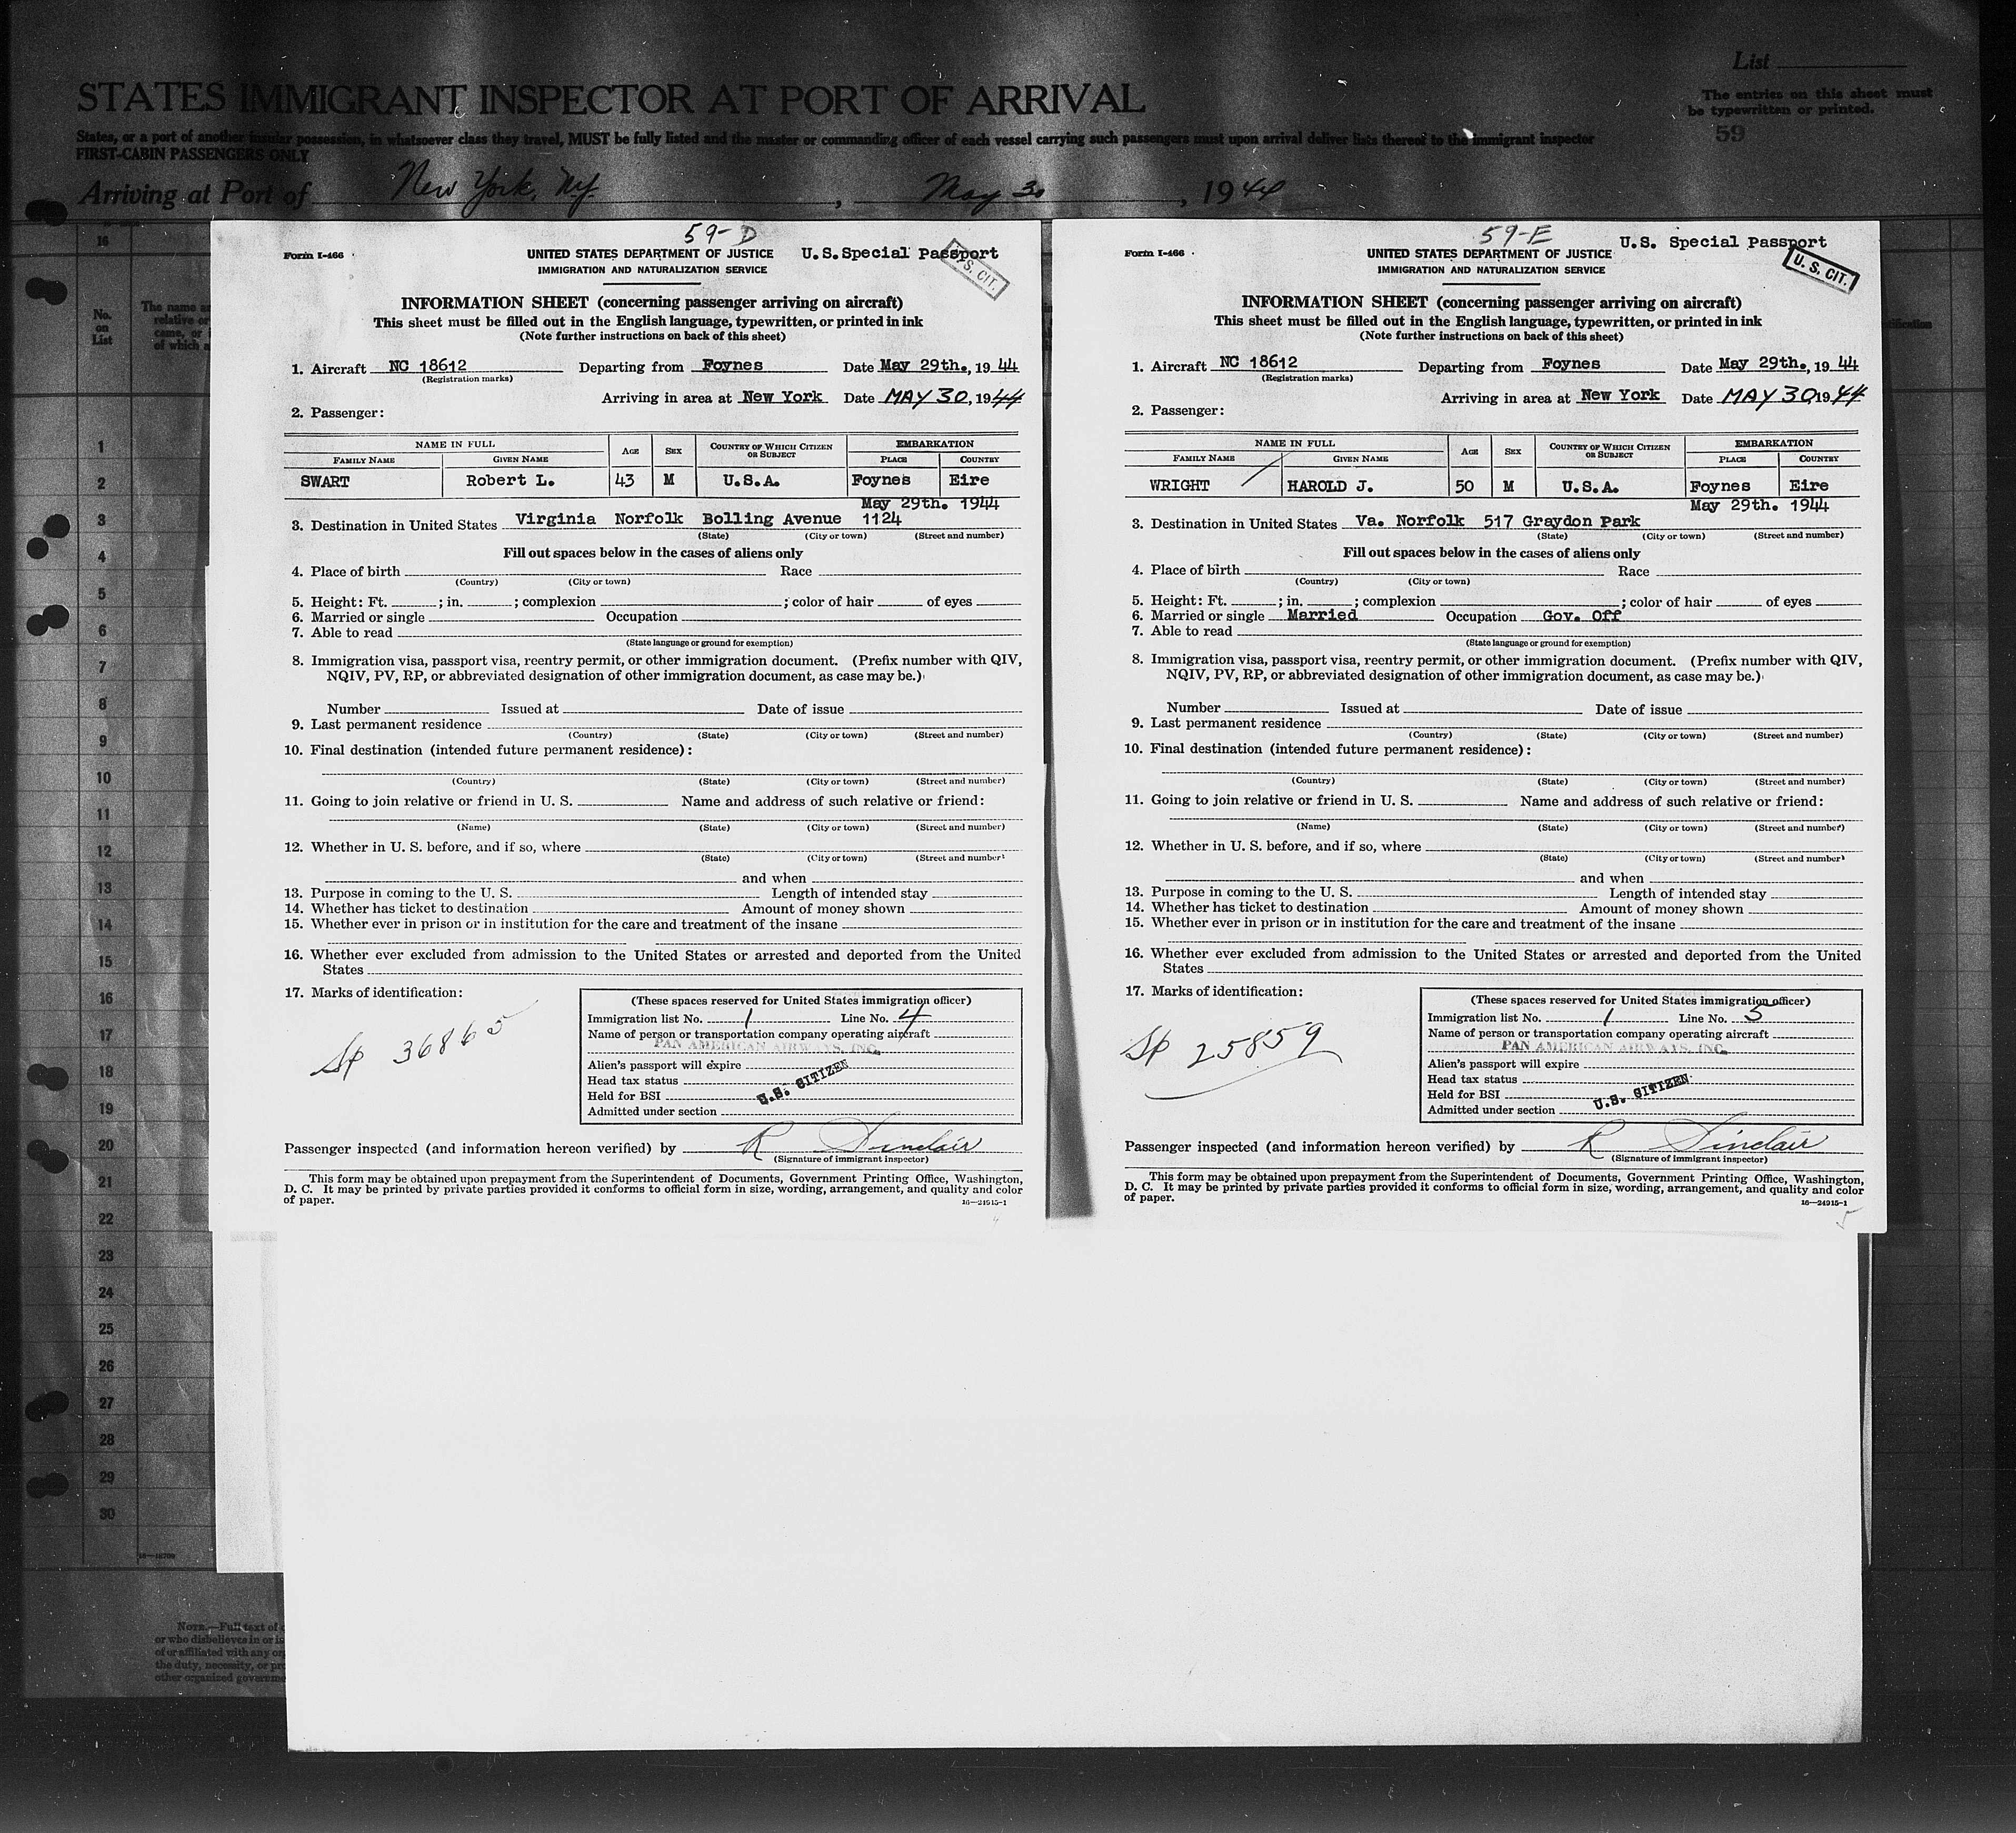 List
STATES IMMIGRANT INSPECTOR AT PORT OF ARRIVAL
The entries on this sheet must
be typewritten or printed.
States, or a port of another insular possession, in whatsoever class they travel, MUST be fully listed and the master or commanding officer of each vessel carrying such passengers must upon arrival deliver lists thereof to the immigrant inspector
59
FIRST-CABIN PASSENGERS ONLY
Arriving at Port of New York, NY. , May 30 , 1944
16
No.
on
List
The name a
relative or
came, or i
of which a
1
2
3
4
5
6
7
8
9
10
11
12
13
14
15
16
17
18
19
20
21
22
23
24
25
26
27
28
29
30
NOTE.—Full text of
or who disbelieves in or is
of or affiliated with any org
the duty, necessity, or pr
other organized governme
59-D
Form I-466
UNITED STATES DEPARTMENT OF JUSTICE U.S.Special Passport
U. S. CIT.
IMMIGRATION AND NATURALIZATION SERVICE
INFORMATION SHEET (concerning passenger arriving on aircraft)
This sheet must be filled out in the English language, typewritten, or printed in ink
(Note further instructions on back of this sheet)
1. Aircraft NC 18612 Departing from Foynes Date May 29th., 1944
(Registration marks)
Arriving in area at New York Date MAY 30, 1944
2. Passenger:
NAME IN FULL AGE SEX COUNTRY OF WHICH CITIZEN OR SUBJECT EMBARKATION
FAMILY NAME GIVEN NAME PLACE COUNTRY
SWART Robert L. 43 M U.S.A. Foynes Eire
May 29th. 1944
3. Destination in United States Virginia Norfolk Bolling Avenue 1124
(State) (City or town) (Street and number)
Fill out spaces below in the cases of aliens only
4. Place of birth Race
(Country) (City or town)
5. Height: Ft. ; in. ; complexion ; color of hair of eyes
6. Married or single Occupation
7. Able to read
(State language or ground for exemption)
8. Immigration visa, passport visa, reentry permit, or other immigration document. (Prefix number with QIV,
NQIV, PV, RP, or abbreviated designation of other immigration document, as case may be.)
Number Issued at Date of issue
9. Last permanent residence
(Country) (State) (City or town) (Street and number)
10. Final destination (intended future permanent residence):
(Country) (State) (City or town) (Street and number)
11. Going to join relative or friend in U. S. Name and address of such relative or friend:
(Name) (State) (City or town) (Street and number)
12. Whether in U. S. before, and if so, where
(State) (City or town) (Street and number)
and when
13. Purpose in coming to the U. S. Length of intended stay
14. Whether has ticket to destination Amount of money shown
15. Whether ever in prison or in institution for the care and treatment of the insane
16. Whether ever excluded from admission to the United States or arrested and deported from the United
States
17. Marks of identification:
Sp 36865
(These spaces reserved for United States immigration officer)
Immigration list No. 1 Line No. 4
Name of person or transportation company operating aircraft
PAN AMERICAN AIRWAYS, INC.
Alien's passport will expire
Head tax status
Held for BSI
U.S. CITIZEN
Admitted under section
Passenger inspected (and information hereon verified) by R Sinclair
(Signature of immigrant inspector)
This form may be obtained upon prepayment from the Superintendent of Documents, Government Printing Office, Washington,
D. C. It may be printed by private parties provided it conforms to official form in size, wording, arrangement, and quality and color
of paper.
16—24915-1
4
59-E
Form I-466
UNITED STATES DEPARTMENT OF JUSTICE U.S. Special Passport
U. S. CIT.
IMMIGRATION AND NATURALIZATION SERVICE
INFORMATION SHEET (concerning passenger arriving on aircraft)
This sheet must be filled out in the English language, typewritten, or printed in ink
(Note further instructions on back of this sheet)
1. Aircraft NC 18612 Departing from Foynes Date May 29th., 1944
(Registration marks)
Arriving in area at New York Date MAY 30 1944
2. Passenger:
NAME IN FULL AGE SEX COUNTRY OF WHICH CITIZEN OR SUBJECT EMBARKATION
FAMILY NAME GIVEN NAME PLACE COUNTRY
WRIGHT HAROLD J. 50 M U.S.A. Foynes Eire
May 29th. 1944
3. Destination in United States Va. Norfolk 517 Graydon Park
(State) (City or town) (Street and number)
Fill out spaces below in the cases of aliens only
4. Place of birth Race
(Country) (City or town)
5. Height: Ft. ; in. ; complexion ; color of hair of eyes
6. Married or single Married Occupation Gov. Off
7. Able to read
(State language or ground for exemption)
8. Immigration visa, passport visa, reentry permit, or other immigration document. (Prefix number with QIV,
NQIV, PV, RP, or abbreviated designation of other immigration document, as case may be.)
Number Issued at Date of issue
9. Last permanent residence
(Country) (State) (City or town) (Street and number)
10. Final destination (intended future permanent residence):
(Country) (State) (City or town) (Street and number)
11. Going to join relative or friend in U. S. Name and address of such relative or friend:
(Name) (State) (City or town) (Street and number)
12. Whether in U. S. before, and if so, where
(State) (City or town) (Street and number)
and when
13. Purpose in coming to the U. S. Length of intended stay
14. Whether has ticket to destination Amount of money shown
15. Whether ever in prison or in institution for the care and treatment of the insane
16. Whether ever excluded from admission to the United States or arrested and deported from the United
States
17. Marks of identification:
Sp 25859
(These spaces reserved for United States immigration officer)
Immigration list No. 1 Line No. 5
Name of person or transportation company operating aircraft
PAN AMERICAN AIRWAYS, INC.
Alien's passport will expire
Head tax status
Held for BSI
U.S. CITIZEN
Admitted under section
Passenger inspected (and information hereon verified) by R Sinclair
(Signature of immigrant inspector)
This form may be obtained upon prepayment from the Superintendent of Documents, Government Printing Office, Washington,
D. C. It may be printed by private parties provided it conforms to official form in size, wording, arrangement, and quality and color
of paper.
16—24915-1
5